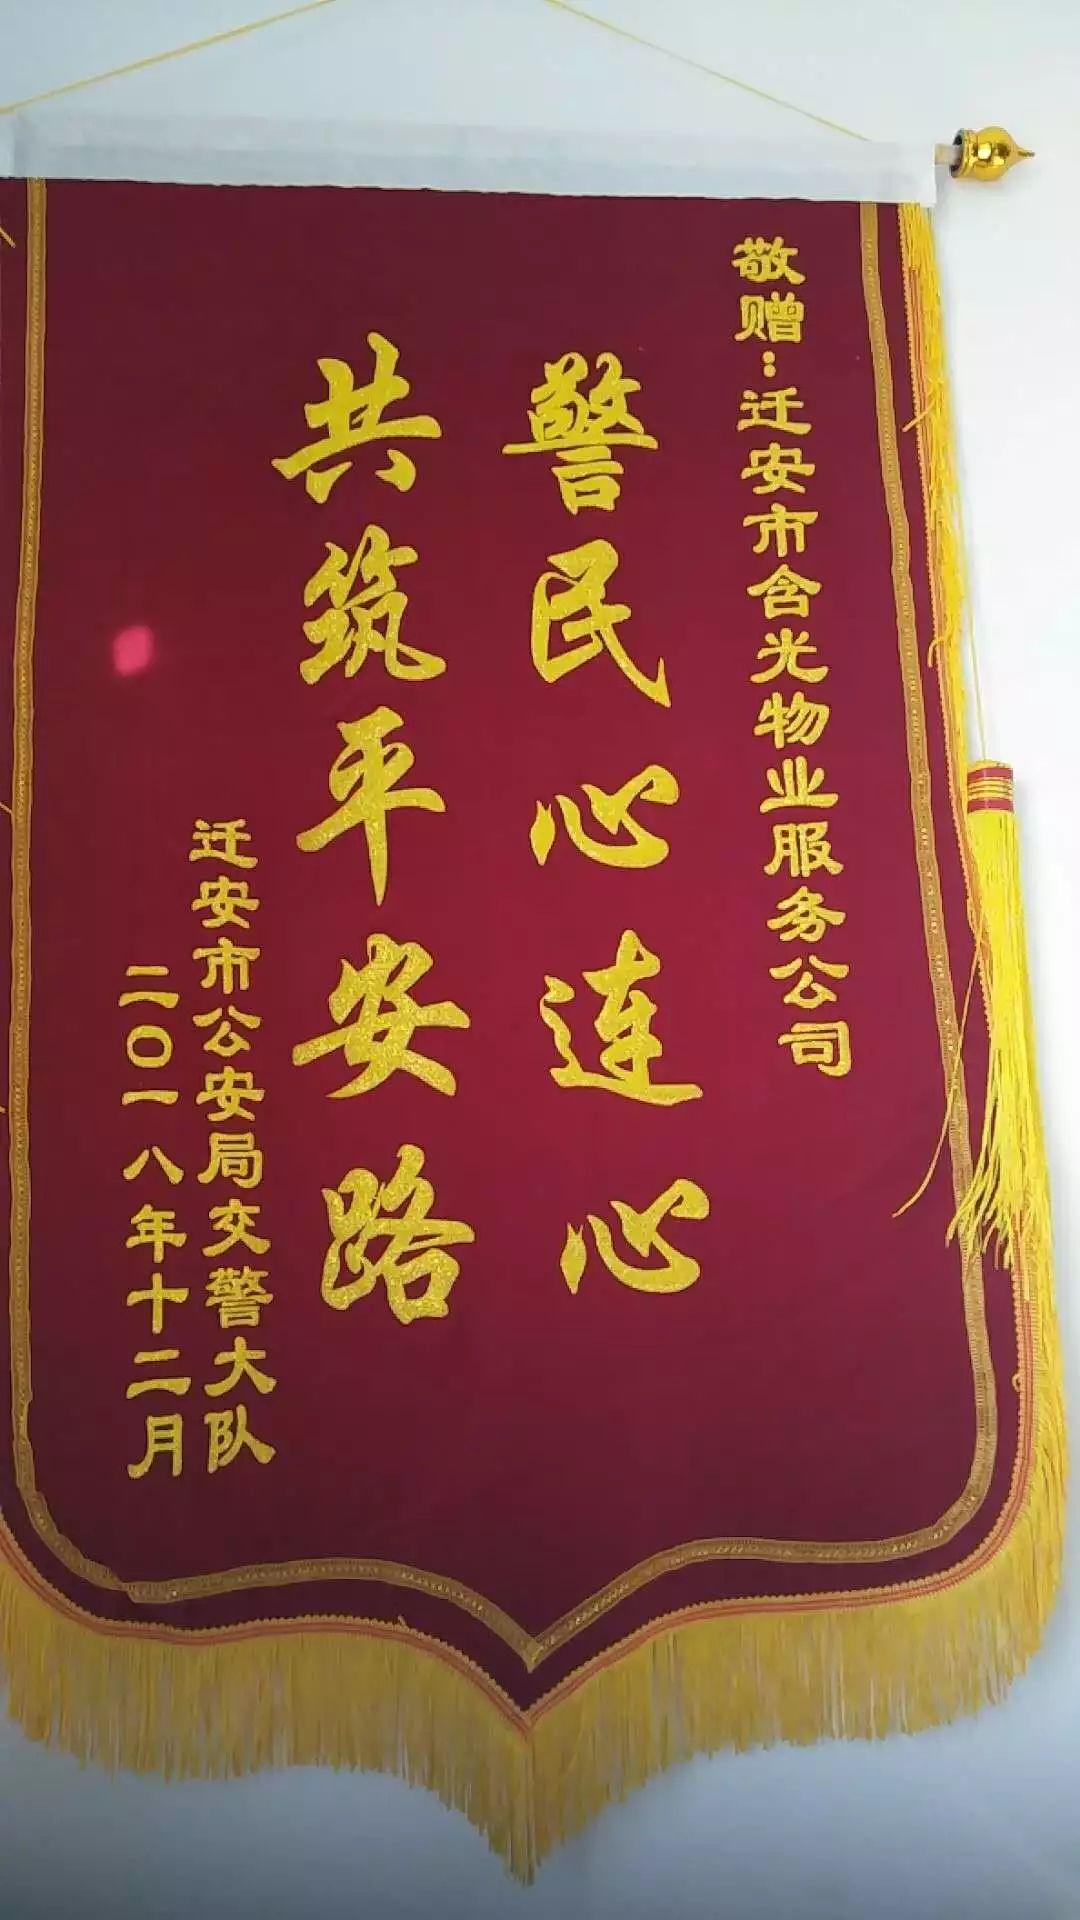 敬赠：迁安市含光物业服务公司
警民心连心
共筑平安路
迁安市公安局交警大队
二〇一八年十二月